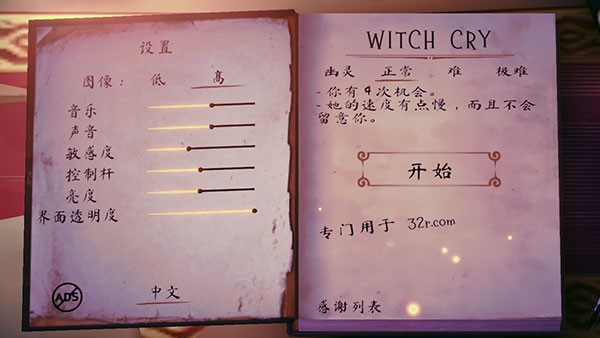 设置
图像： 低 高
音乐
声音
敏感度
控制杆
亮度
界面透明度
ADS
中文
WITCH CRY
幽灵 正常 难 极难
- 你有4次机会。
- 她的速度有点慢，而且不会
留意你。
开始
专门用于 32r.com
感谢列表